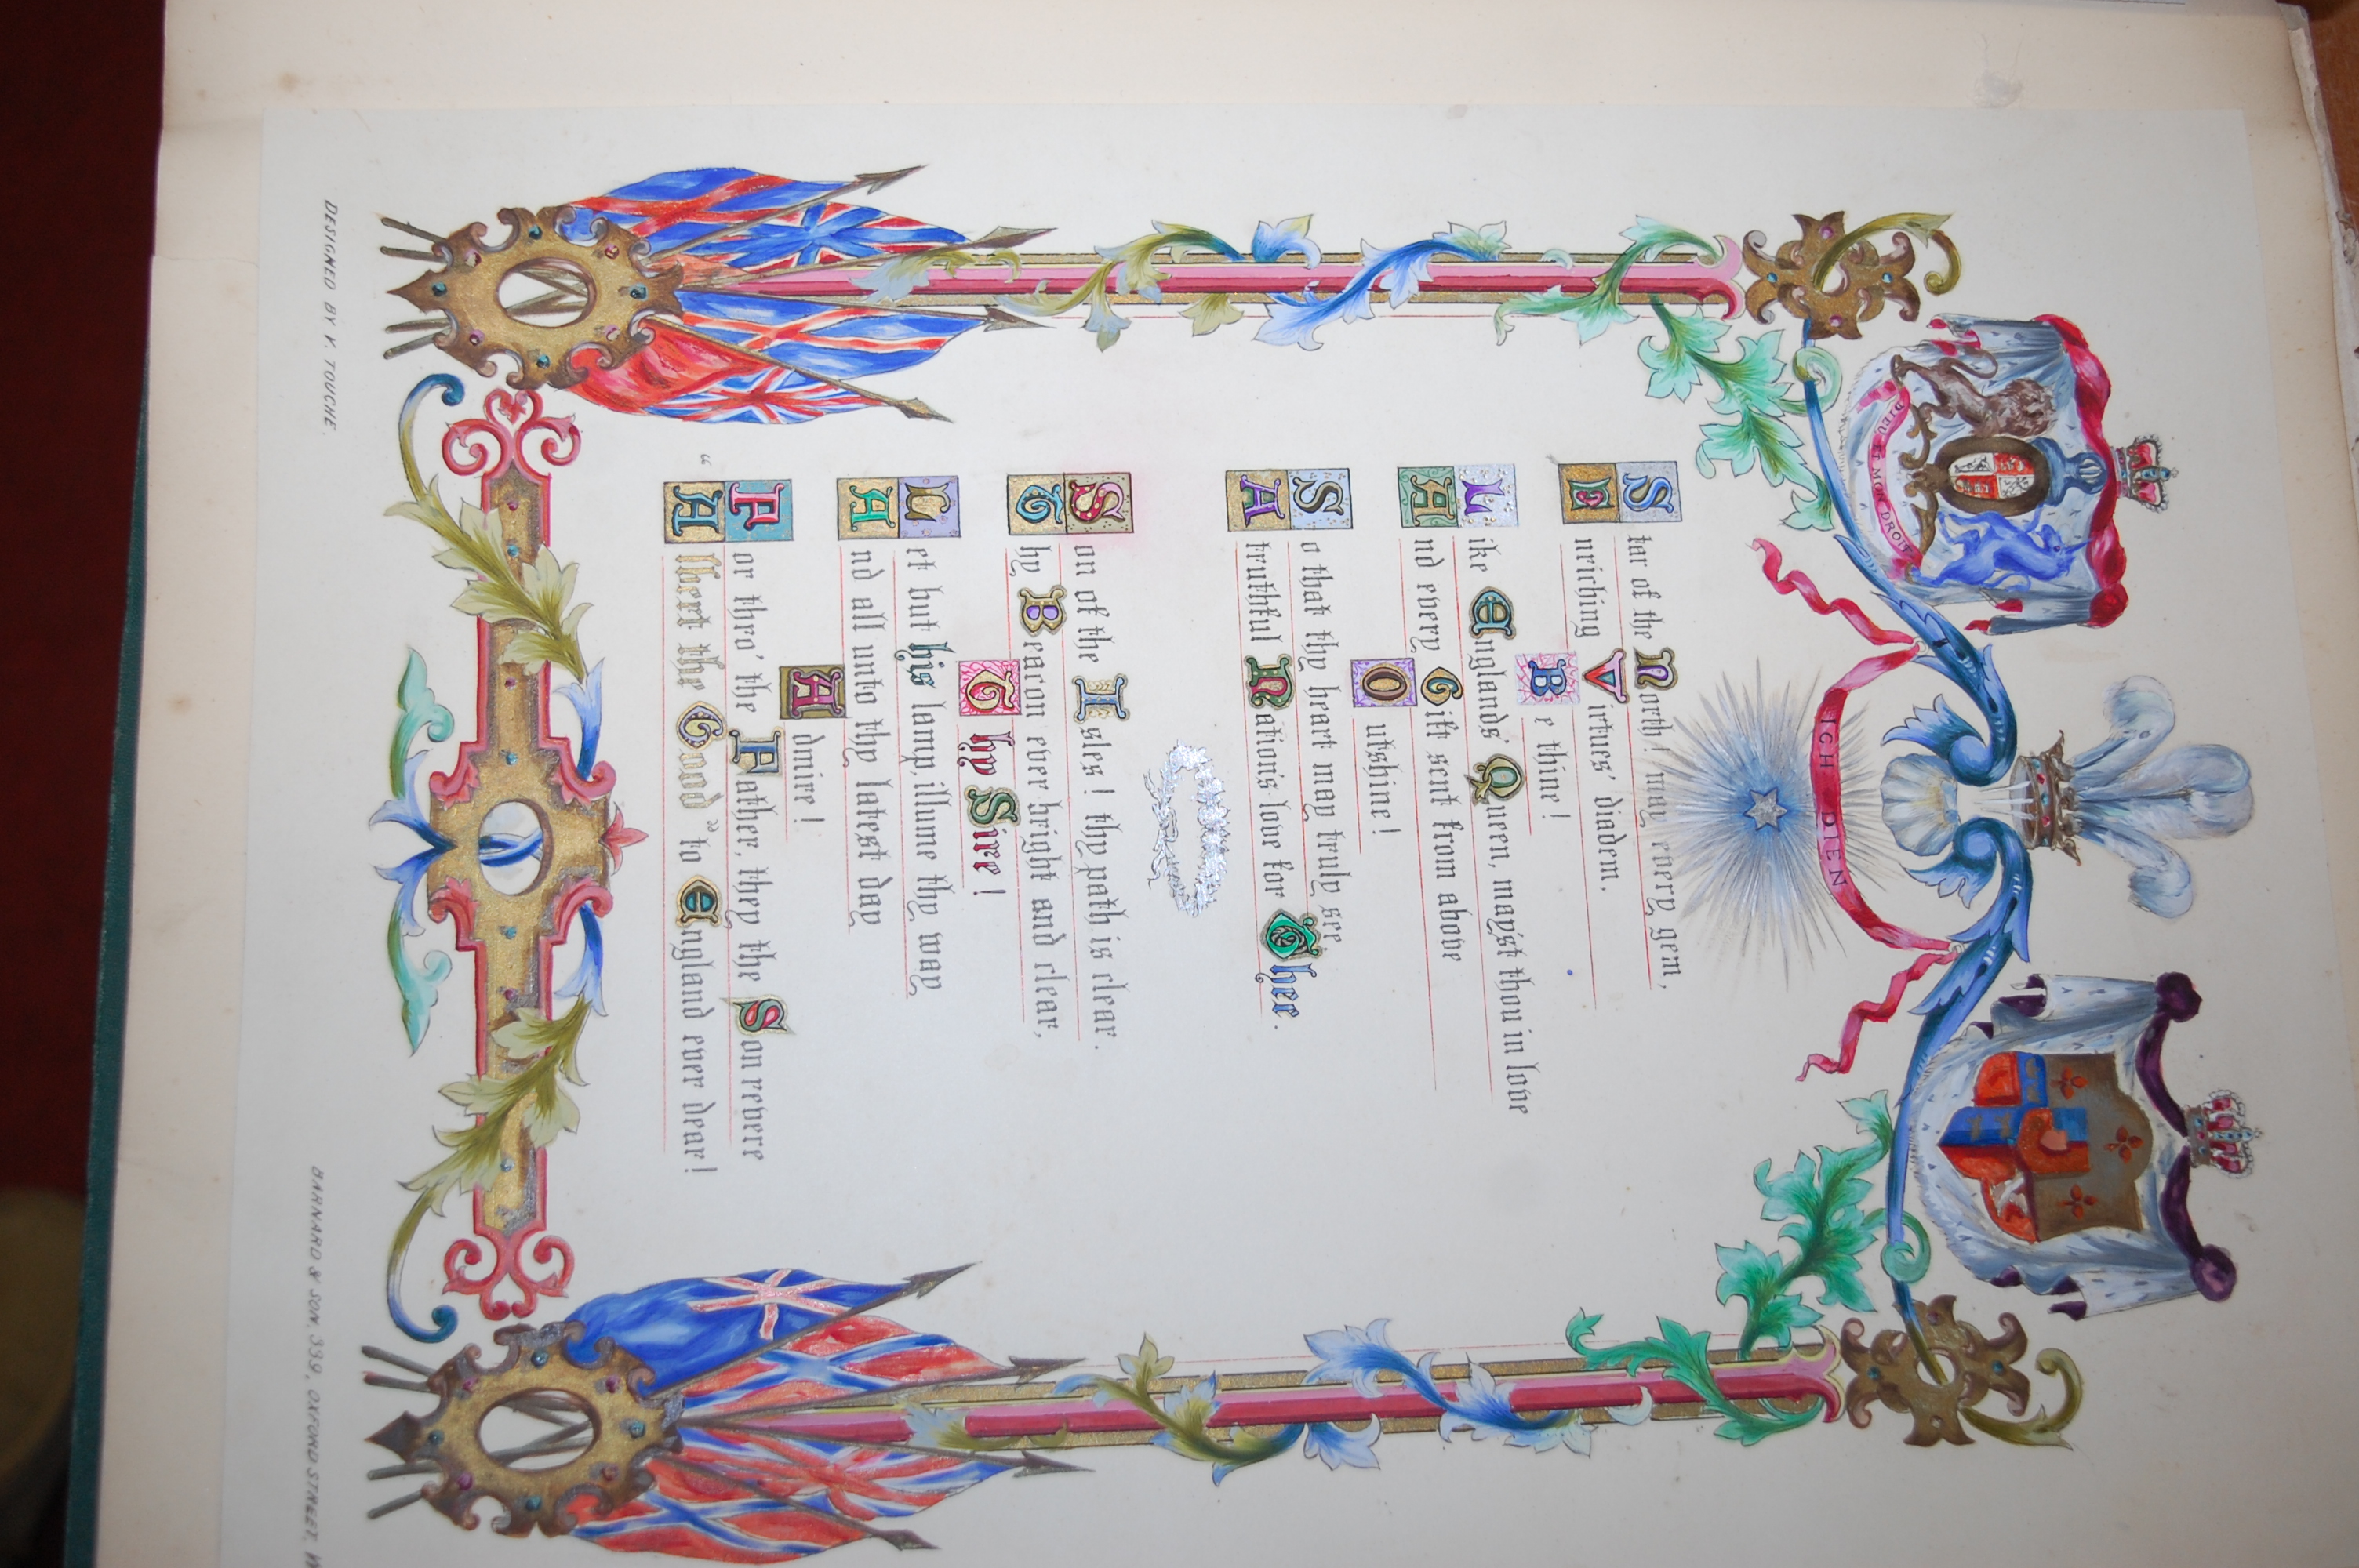 DIEU ET MON DROIT
ICH DIEN
Star of the North! may every gem,
Enriching Virtues' diadem,
Be thine!
Like Englands' Queen, may'st thou in love
And every Gift sent from above
Outshine!
So that thy heart may truly see
A truthful Nation's love for Thee.
Son of the Isles! thy path is clear:
Thy Beacon ever bright and clear,
Thy Sire!
Let but his lamp, illume thy way
And all unto thy latest day
Admire!
For thro' the Father, they the Son revere
"Albert the Good" to England ever dear!
DESIGNED BY V. TOUCHE.
BARNARD & SON, 339, OXFORD STREET, W